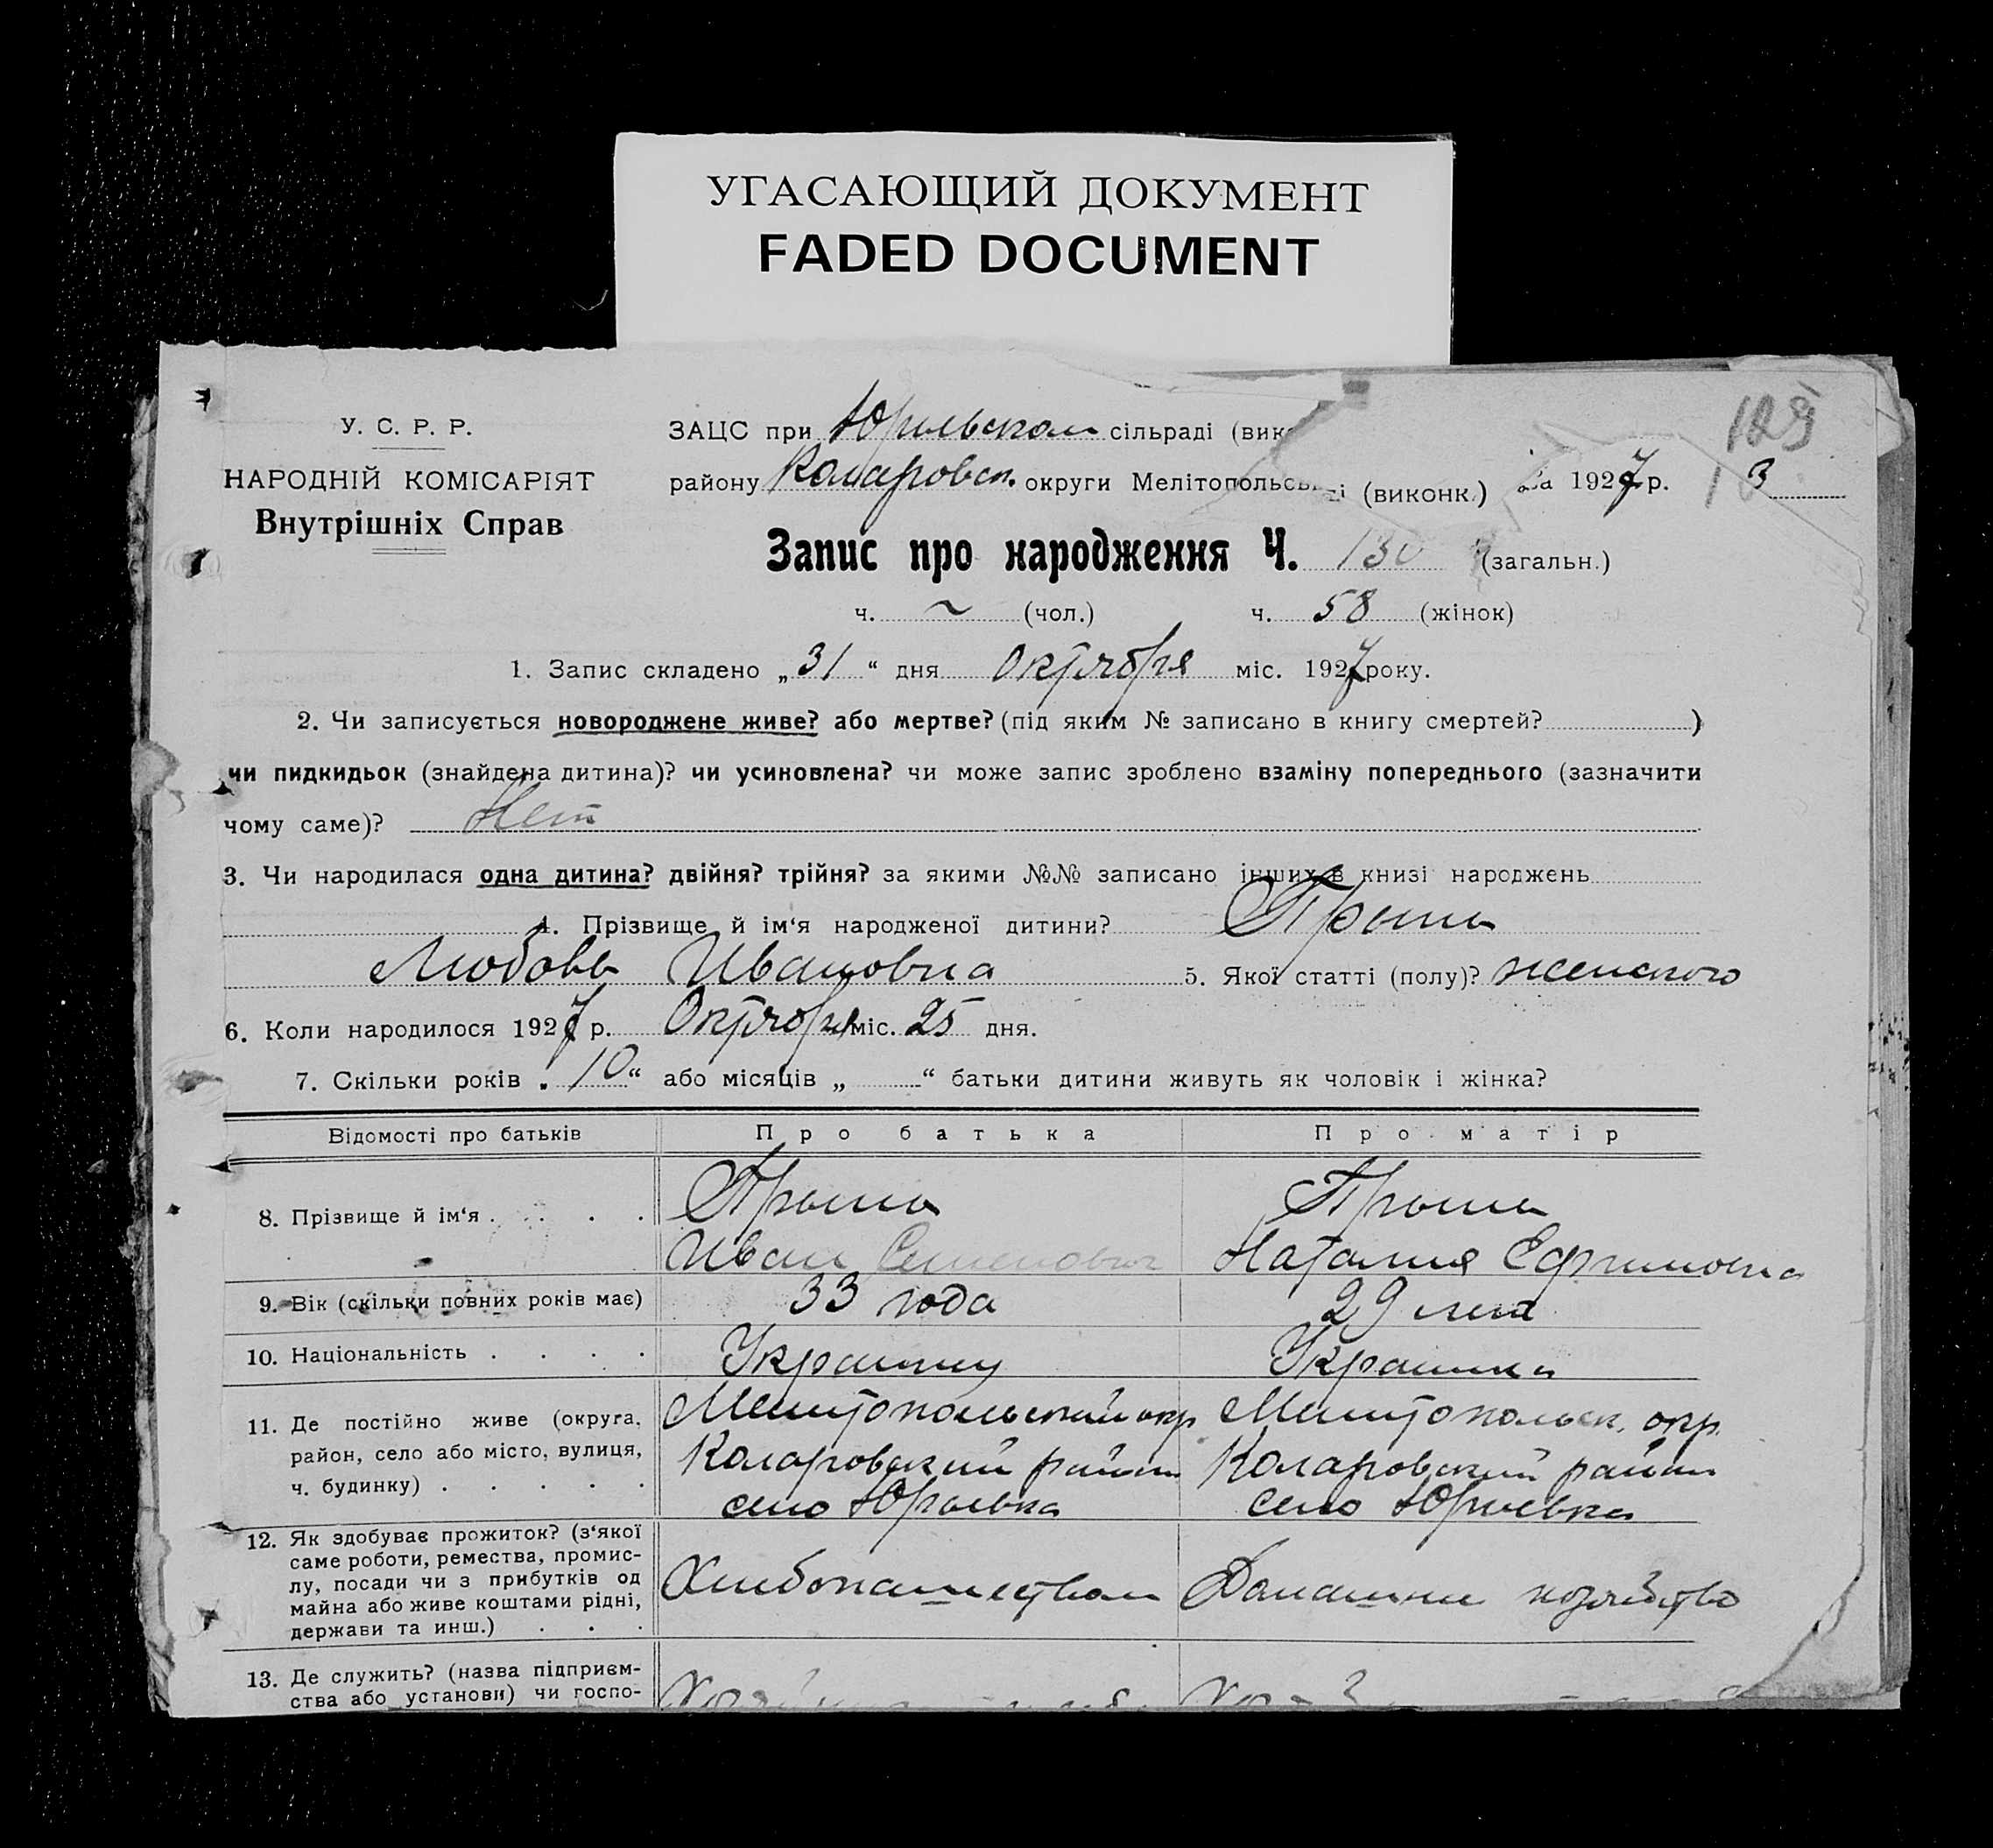 УГАСАЮЩИЙ ДОКУМЕНТ
FADED DOCUMENT
129
У. С. Р. Р.
НАРОДНІЙ КОМІСАРІЯТ
Внутрішніх Справ
ЗАЦС при Юрьевском сільраді (вик
району Коларовск. округи Мелітопольсь (виконк.) за 1927 р.
Запис про народження Ч. 130 (загальн.)
ч. ~ (чол.) ч. 58 (жінок)
1. Запис складено „31“ дня Октября міс. 1927 року.
2. Чи записується новороджене живе? або мертве? (під яким № записано в книгу смертей? )
чи пидкидьок (знайдена дитина)? чи усиновлена? чи може запис зроблено взаміну попереднього (зазначити
чому саме)? Нет
3. Чи народилася одна дитина? двійня? трійня? за якими №№ записано інших в книзі народжень
4. Прізвище й ім‘я народженої дитини?
Любовь Ивановна 5. Якої статті (полу)? женского
6. Коли народилося 1927 р. Октября міс. 25 дня.
7. Скільки років „10“ або місяців „ “ батьки дитини живуть як чоловік і жінка?
Відомості про батьків Про батька Про матір
8. Прізвище й ім‘я
Иван Семенович Наталия Ефимовна
9. Вік (скільки повних років має) 33 года 29 лет
10. Національність Украинец Украинка
11. Де постійно живе (округа, Мелитопольский окр Мелитопольск. окр.
район, село або місто, вулиця, Коларовский район Коларовский район
ч. будинку) село Юрьевка село Юрьевка
12. Як здобуває прожиток? (з‘якої
саме роботи, ремества, промис-
лу, посади чи з прибутків од Хлебопашеством Домашнее хозяйство
майна або живе коштами рідні,
держави та инш.)
13. Де служить? (назва підприєм-
ства або установи) чи госпо-